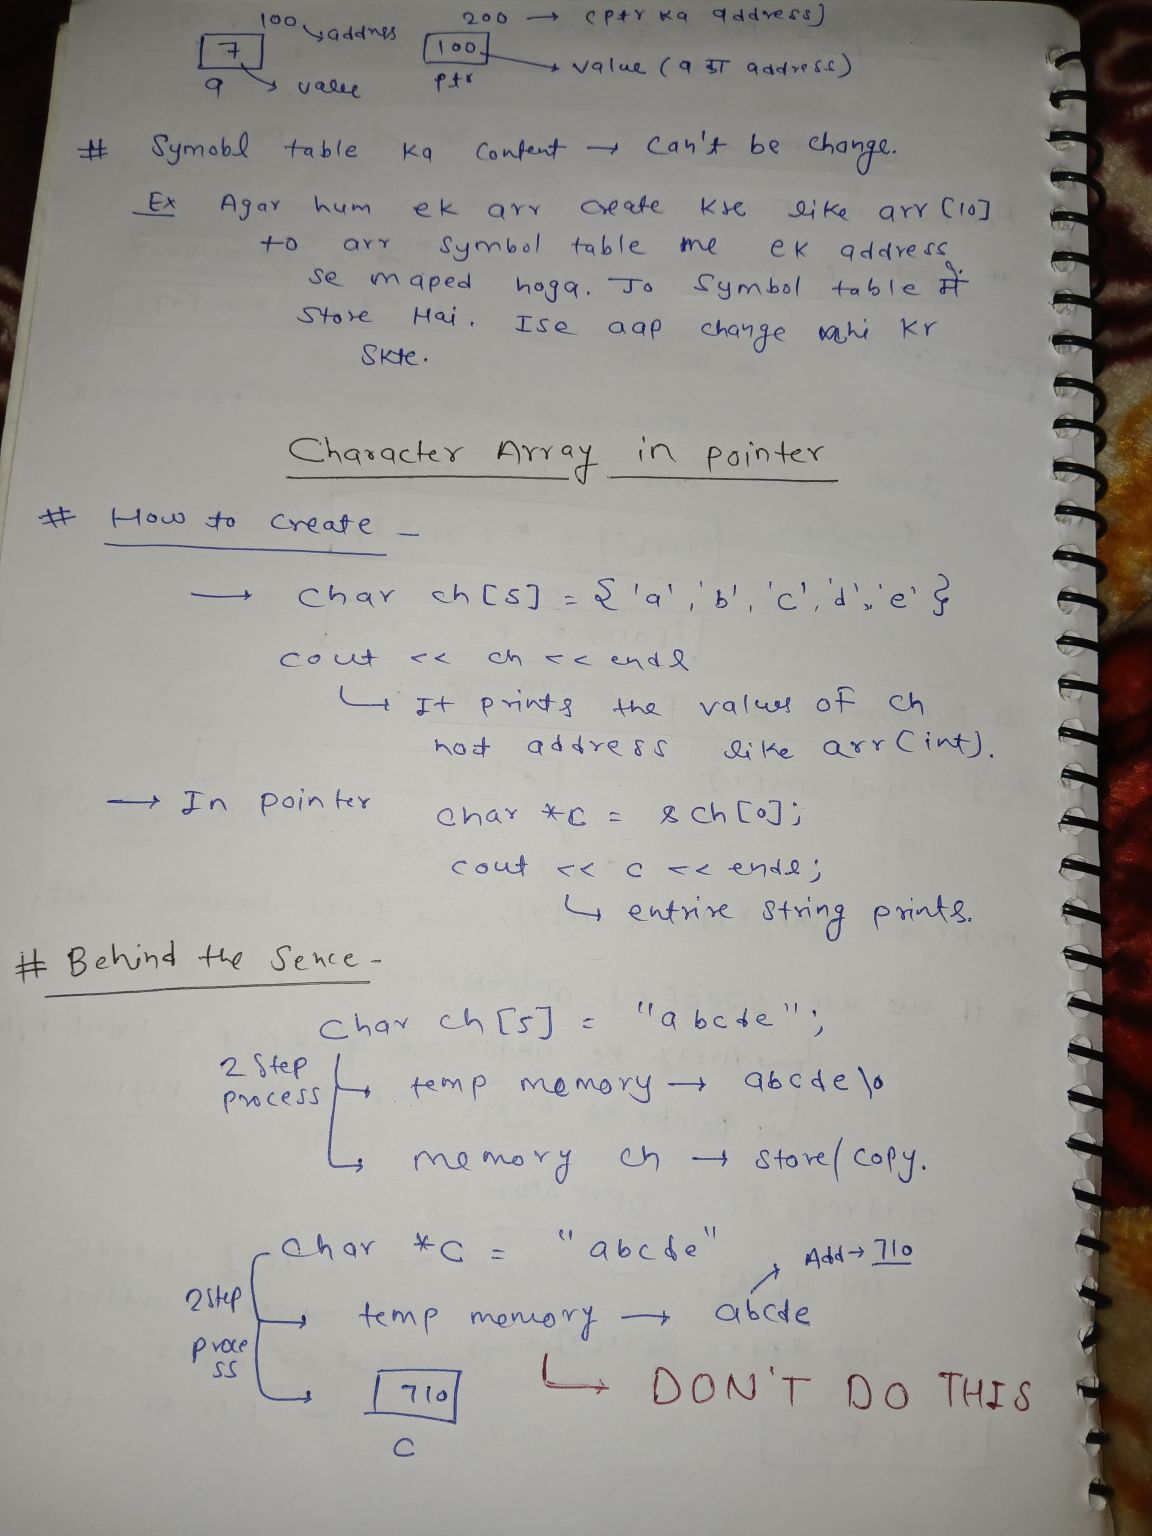 100 → address 200 → (ptr ka address)
7 100
→ value (a का address)
a → value ptr
# Symobl table ka content → can't be change.
Ex Agar hum ek arr create kre like arr [10]
to arr symbol table me ek address
se maped hoga. Jo symbol table में
store Hai. Ise aap change nhi kr
skte.
Character Array in pointer
# How to create -
→ char ch[5] = {'a', 'b', 'c', 'd', 'e'}
cout << ch << endl
↳ It prints the values of ch
not address like arr(int).
→ In pointer char *c = &ch[0];
cout << c << endl;
↳ entrire string prints.
# Behind the Sence -
char ch[5] = "abcde";
2 Step process → temp memory → abcde\0
↳ memory ch → store/copy.
char *c = "abcde"
Add → 710
2 step process → temp memory → abcde
↳ DON'T DO THIS
→ 710
c